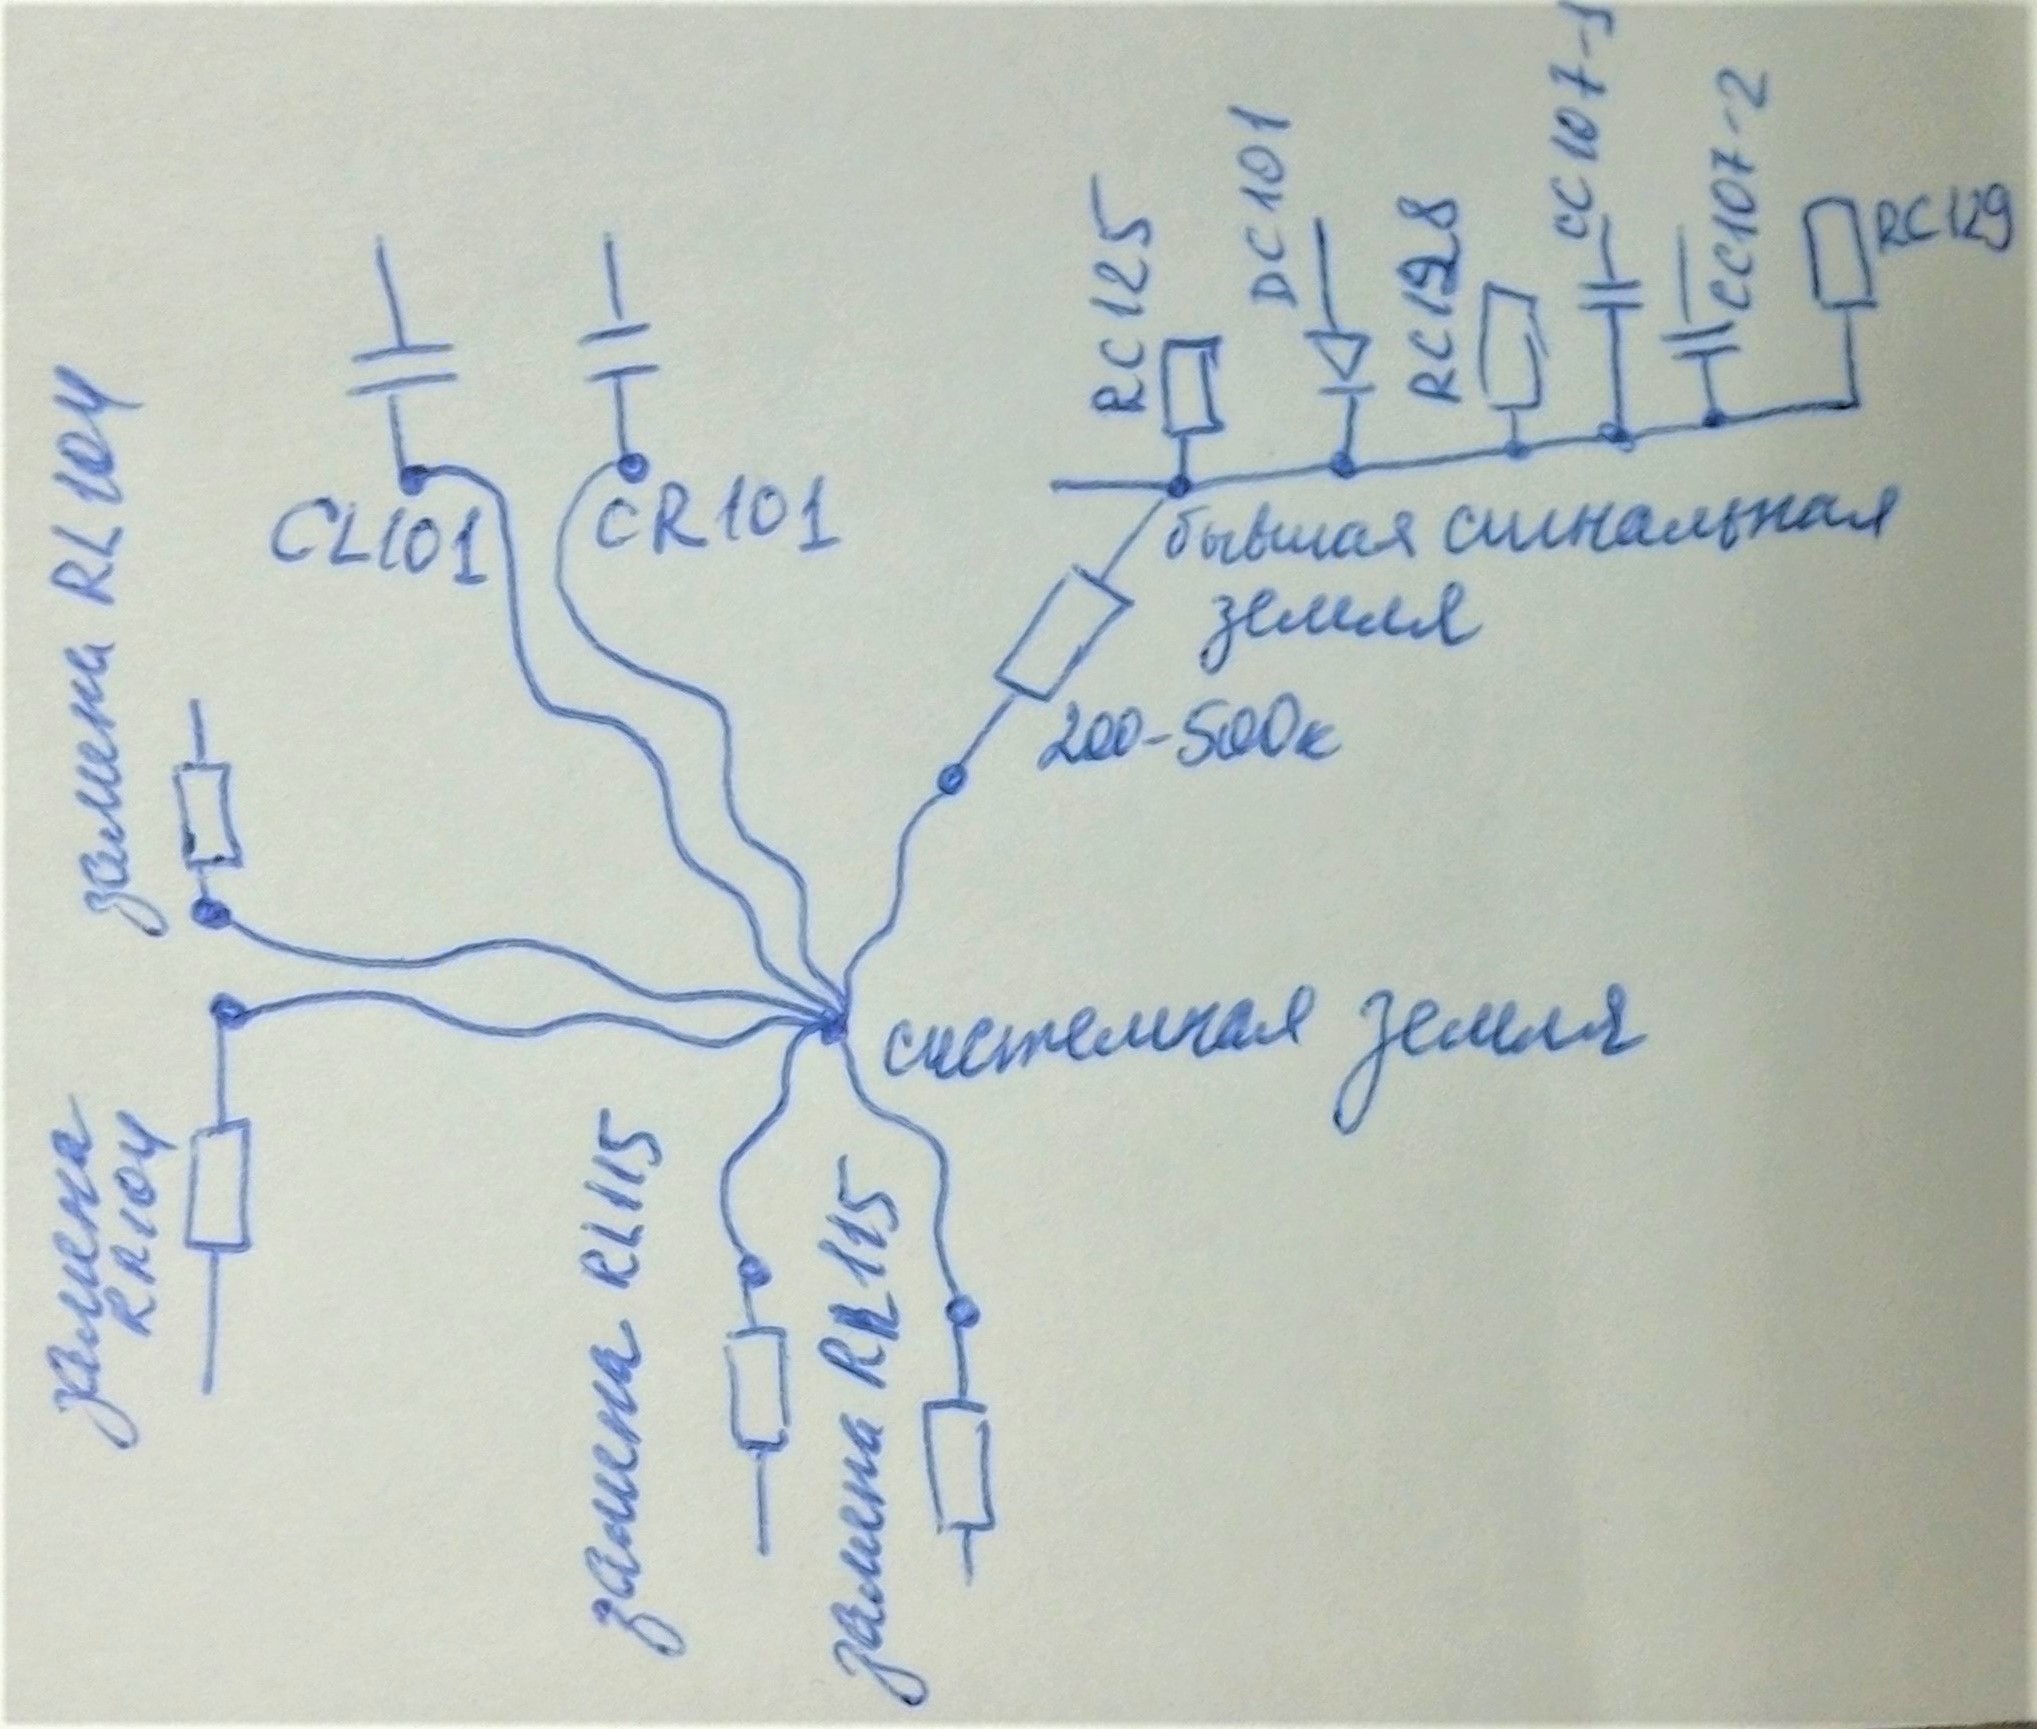 замена RL104
CL101
CR101
RC125
DC101
RC128
CC107-1
CC107-2
RC129
бывшая сигнальная
земля
200-500к
системная земля
замена
RR104
замена RL115
замена RR115